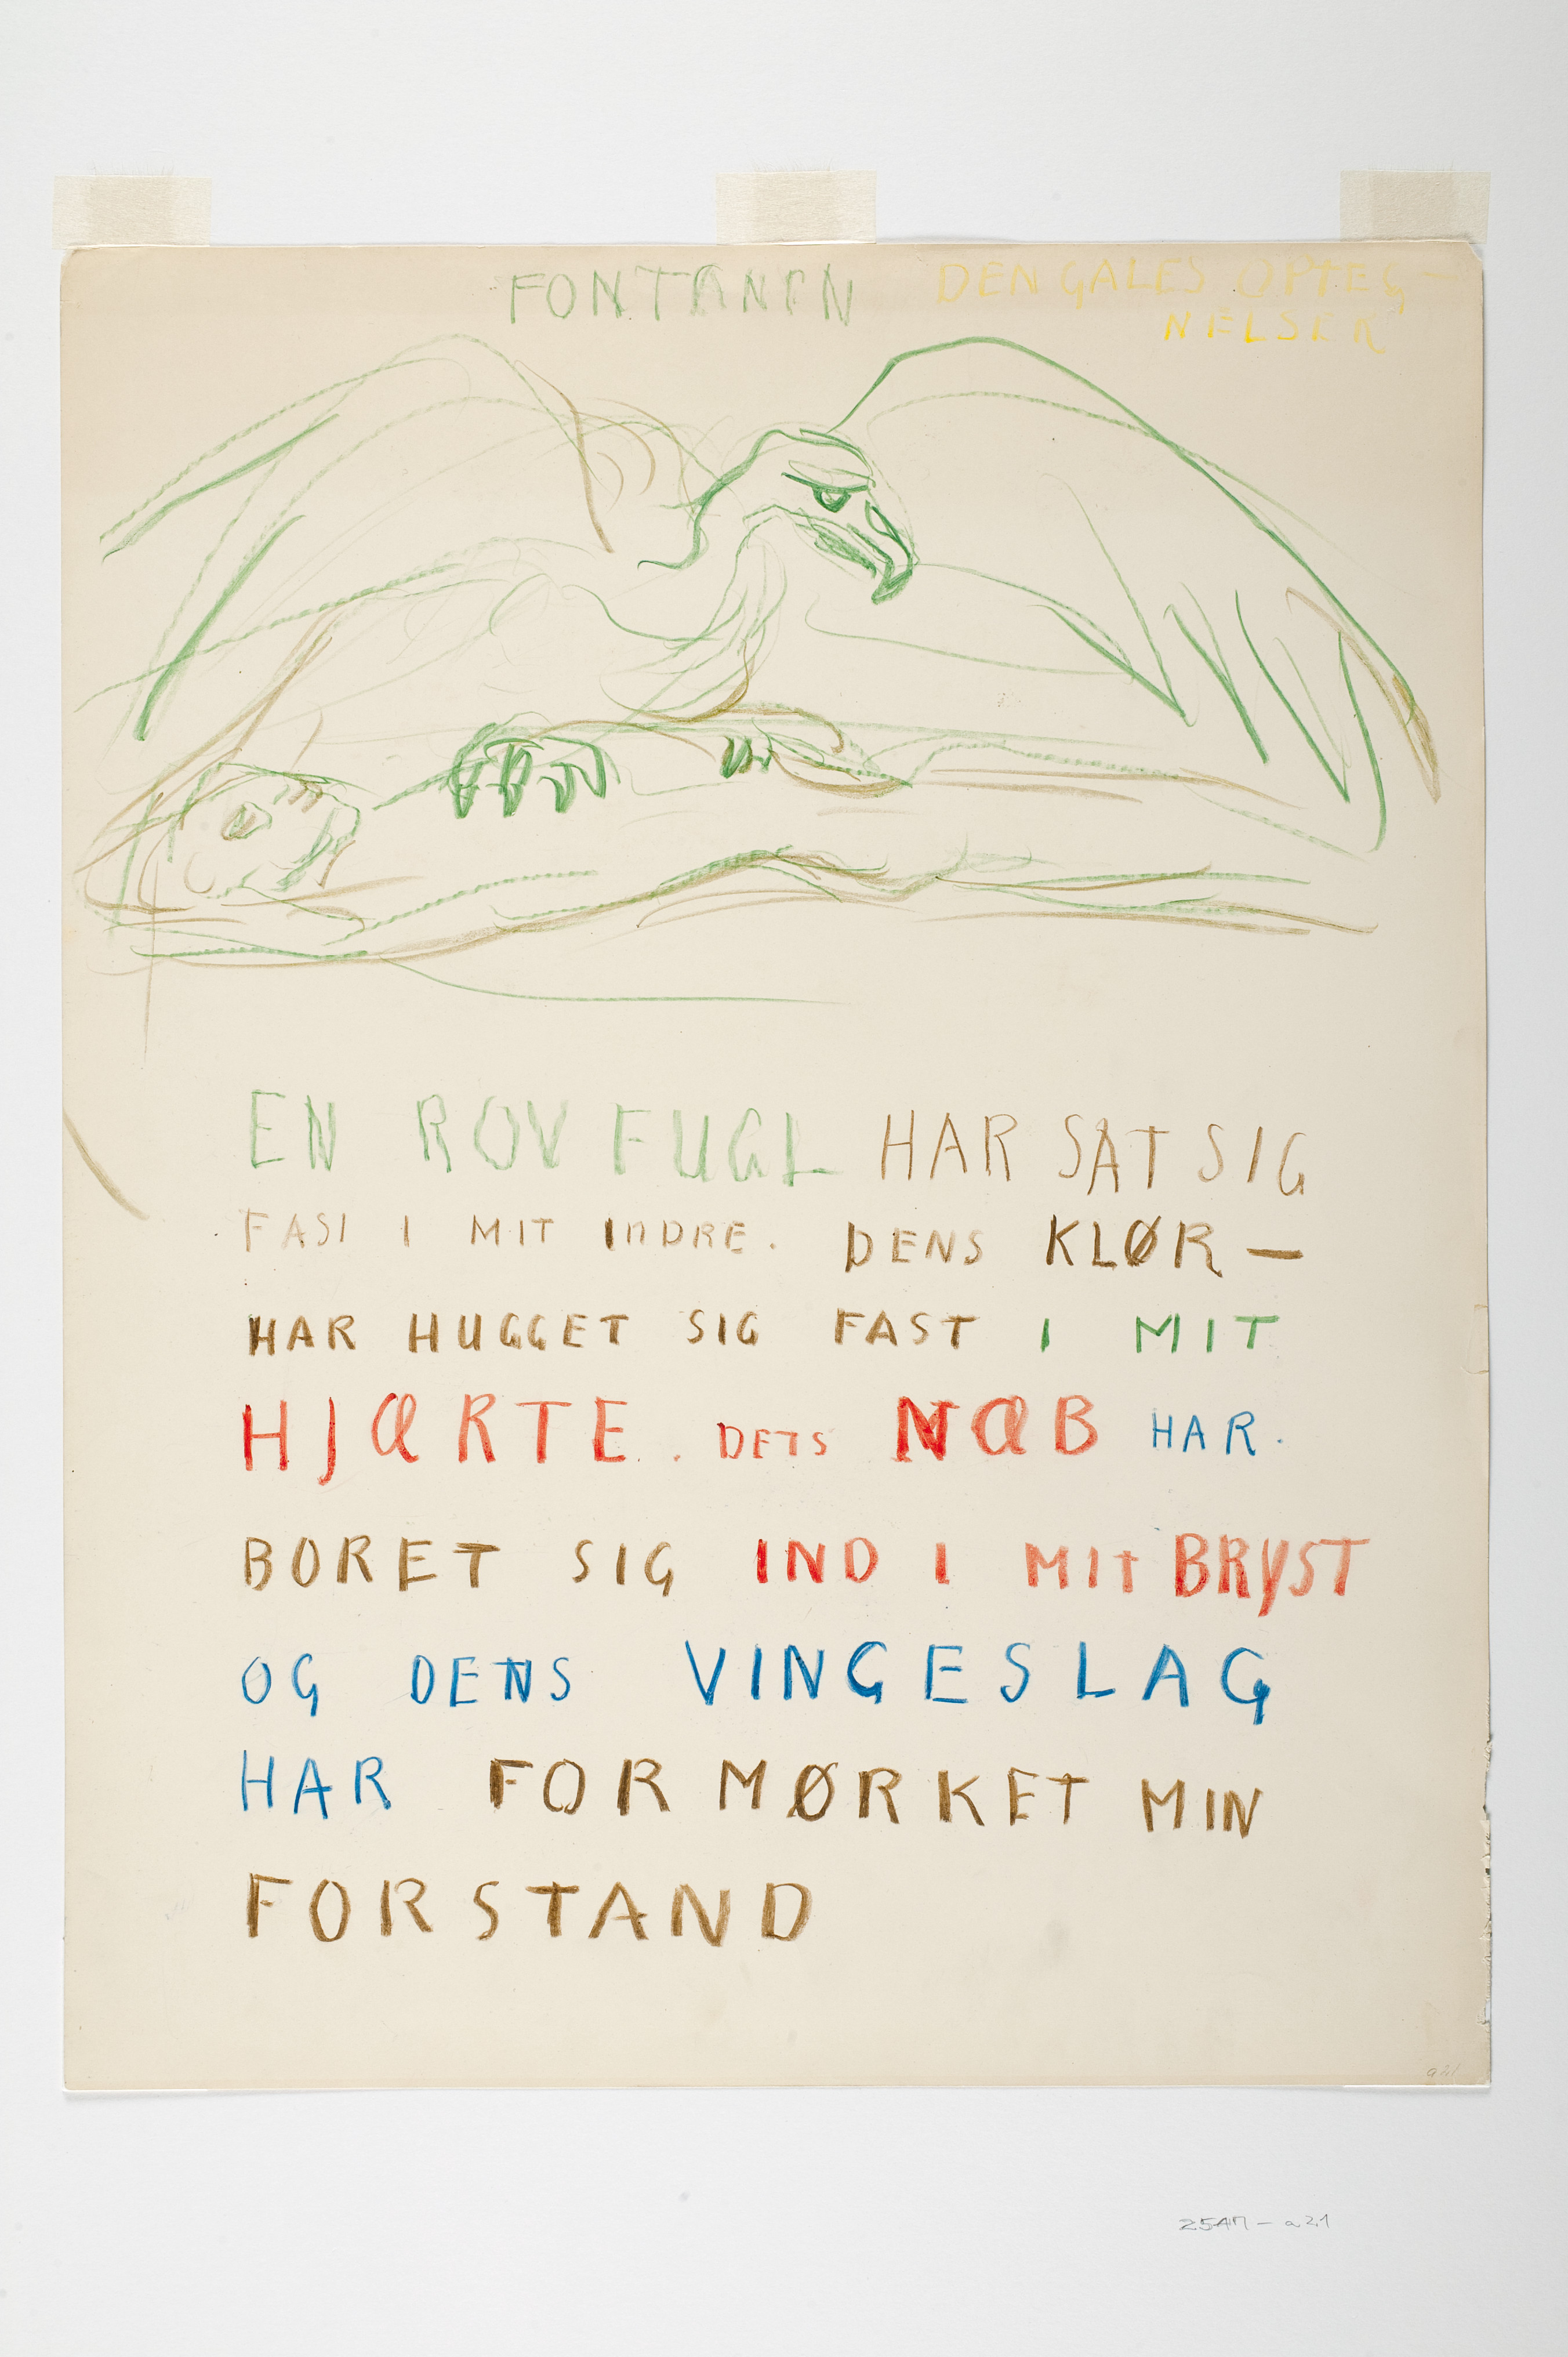 FONTANEN
DEN GALES OPTEG-
NELSER
EN ROVFUGL HAR SAT SIG
FAST I MIT INDRE. DENS KLØR —
HAR HUGGET SIG FAST I MIT
HJÆRTE. DETS NÆB HAR.
BORET SIG IND I MIT BRYST
OG DENS VINGESLAG
HAR FORMØRKET MIN
FORSTAND
a21
25Aπ - a21